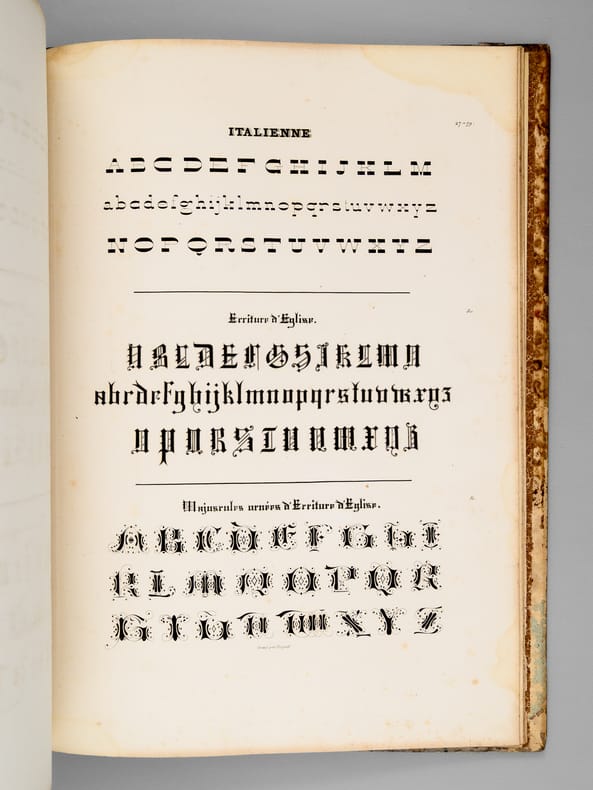 27-29.
ITALIENNE
A B C D E F G H I J K L M
abcdefghijklmnopqrstuvwxyz
N O P Q R S T U V W X Y Z
Ecriture d'Eglise.
A B C D E F G H I J K L M N
abcdefghijklmnopqrstuvwxyz
O P Q R S T U V W X Y Z
Majuscules ornées d'Ecriture d'Eglise.
A B C D E F G H I
K L M N O P Q R
S T U V W X Y Z
Gravé par